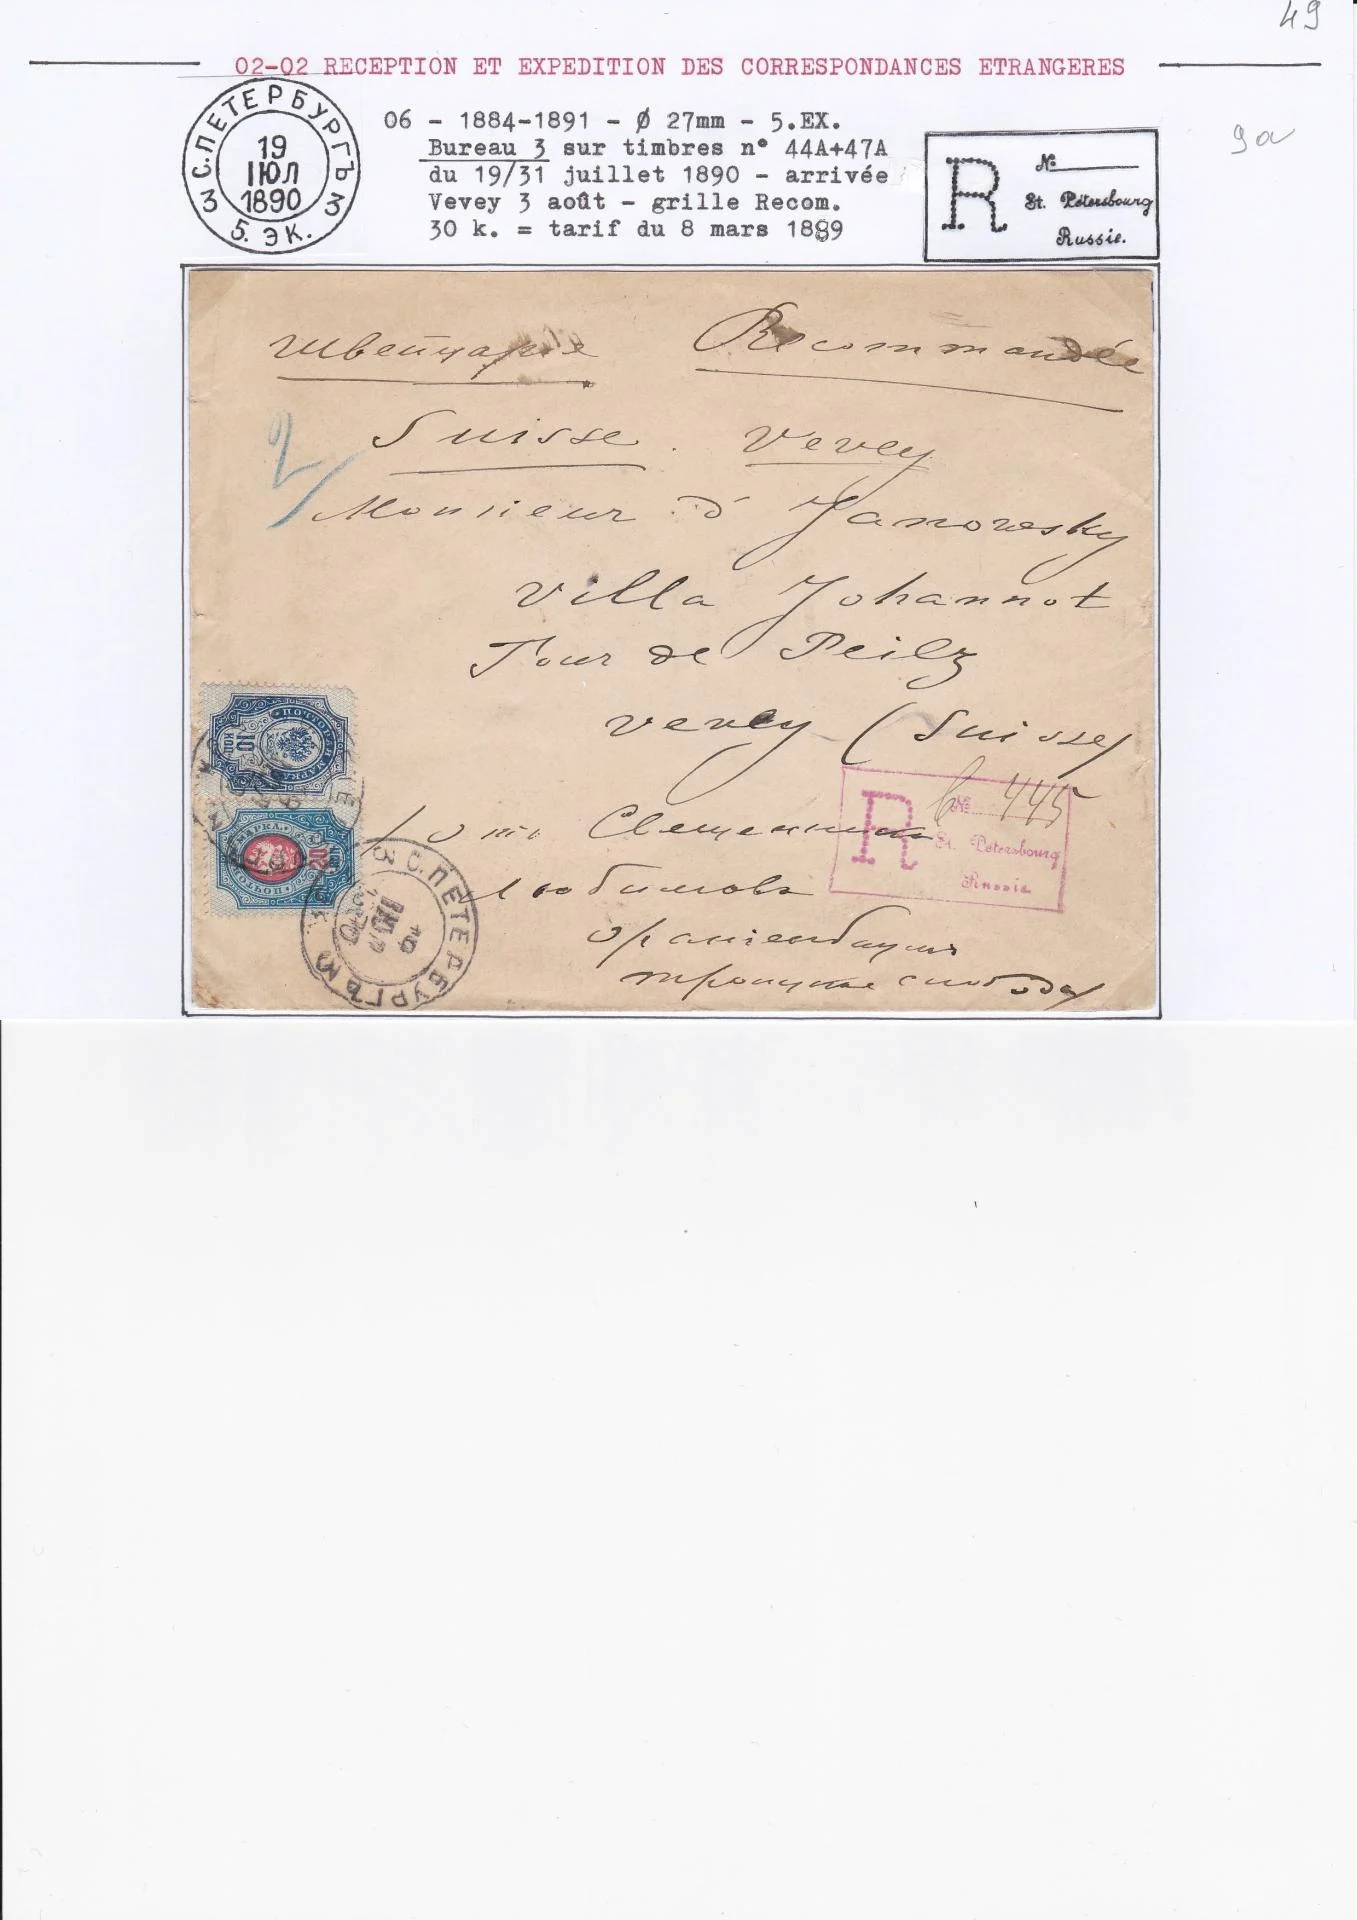 49
02-02 RECEPTION ET EXPEDITION DES CORRESPONDANCES ETRANGERES
С.ПЕТЕРБУРГЪ
19
ІЮЛ
1890
3 3
5. ЭК.
06 - 1884-1891 - Ø 27mm - 5.EX.
Bureau 3 sur timbres n° 44A+47A
du 19/31 juillet 1890 - arrivée
Vevey 3 août - grille Recom.
30 k. = tarif du 8 mars 1889
R
№
St. Pétersbourg
Russie.
9a
Швейцаріе Recommandée
2/
Suisse. Vevey
Monsieur d'Janowsky
Villa Johannot
Tour de Peilz
Vevey (Suisse)
ПОЧТОВАЯ МАРКА
10 КОП
МАРКА
ПОЧТОВ
20
3 С.ПЕТЕРБУРГЪ
19
ІЮЛ
1890
R
№ 445
St. Pétersbourg
Russie
отъ Священника
Любимова